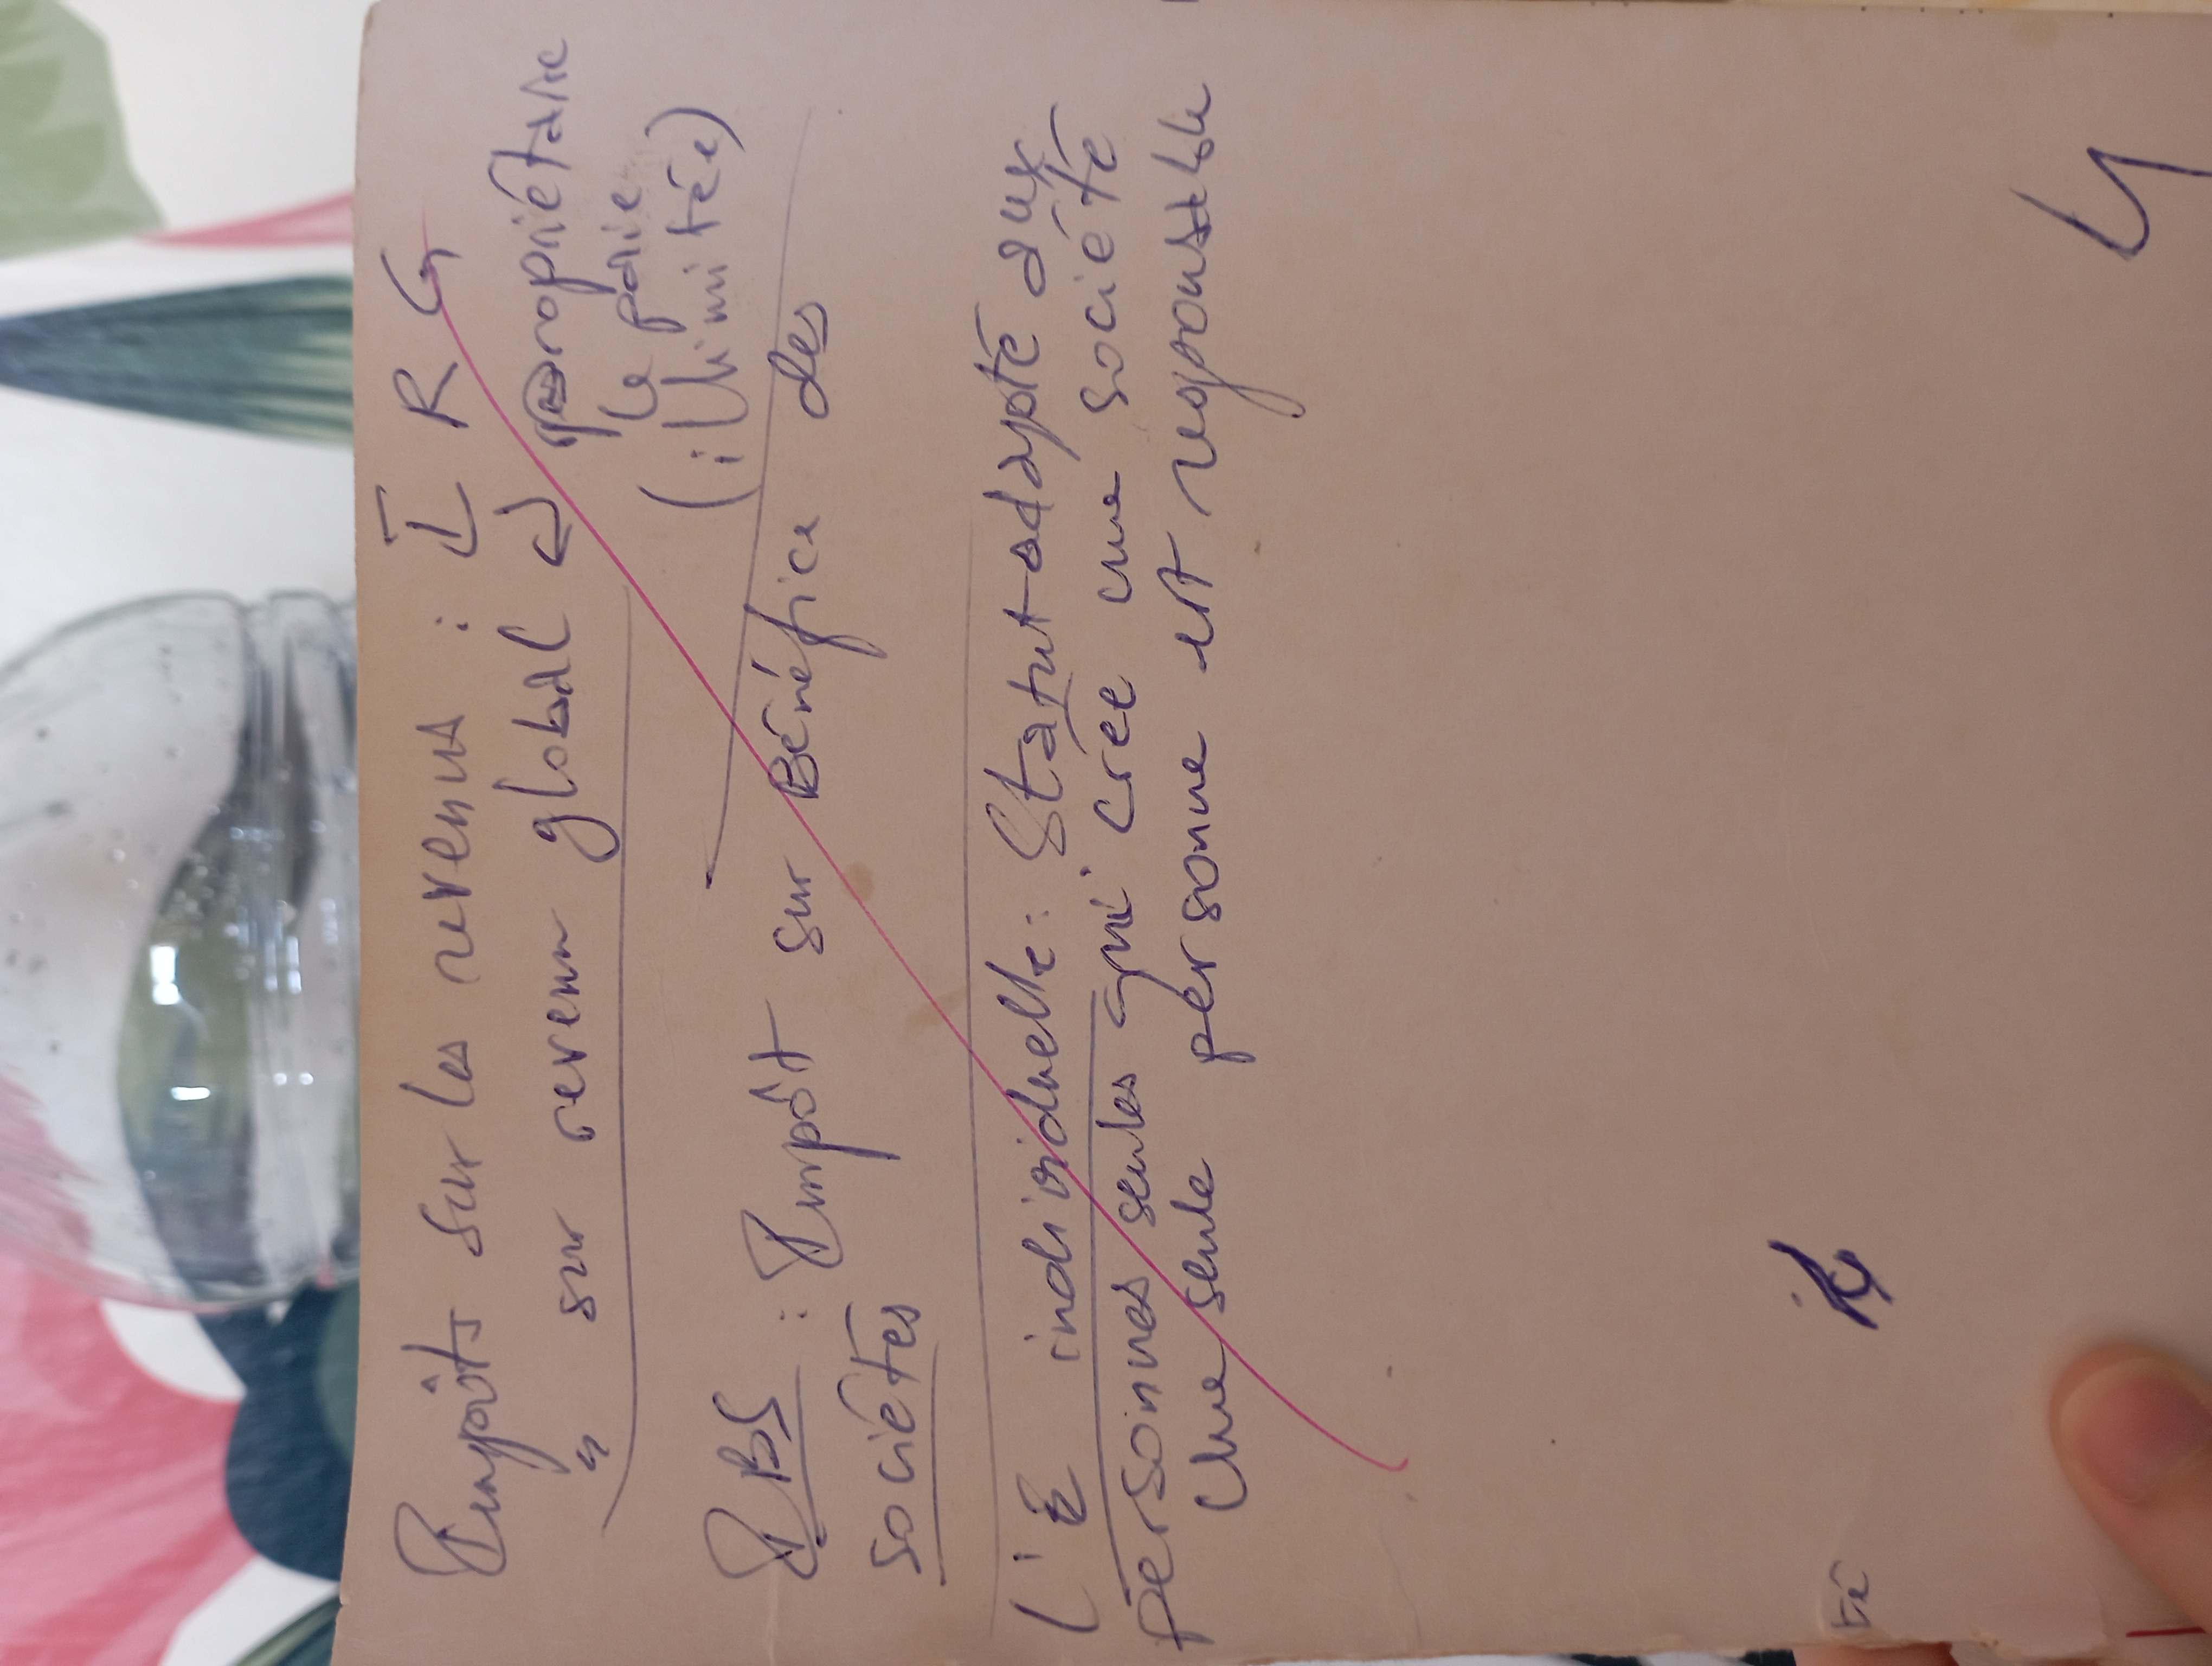 Impôts sur les revenus : I R G
" sur revenu global ↵ propriétaire
le paie
(illimitée)
IBS : Impôt sur Bénéfice des
sociétés
L'E individuelle : Statut adapté aux
personnes seules qui crée une société
Une seule personne est responsable
té
4